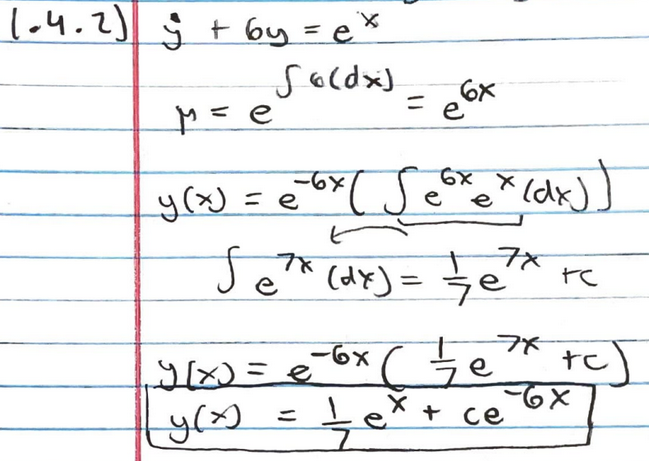 1.4.2) ẏ + 6y = e^x
μ = e^{∫6(dx)} = e^{6x}
y(x) = e^{-6x}(∫e^{6x}e^x(dx))
∫e^{7x}(dx) = 1/7 e^{7x} + c
y(x) = e^{-6x}(1/7 e^{7x} + c)
y(x) = 1/7 e^x + ce^{-6x}